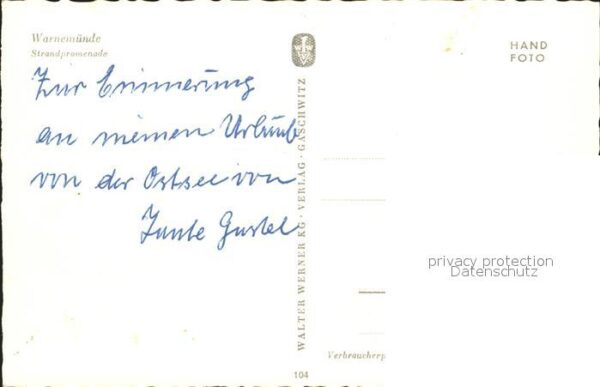 Warnemünde
Strandpromenade
Zur Erinnerung
an meinen Urlaub
von der Ostsee von
Tante Gustel
WALTER WERNER KG · VERLAG · GASCHWITZ
HAND
FOTO
privacy protection
Datenschutz
Verbraucherp
104